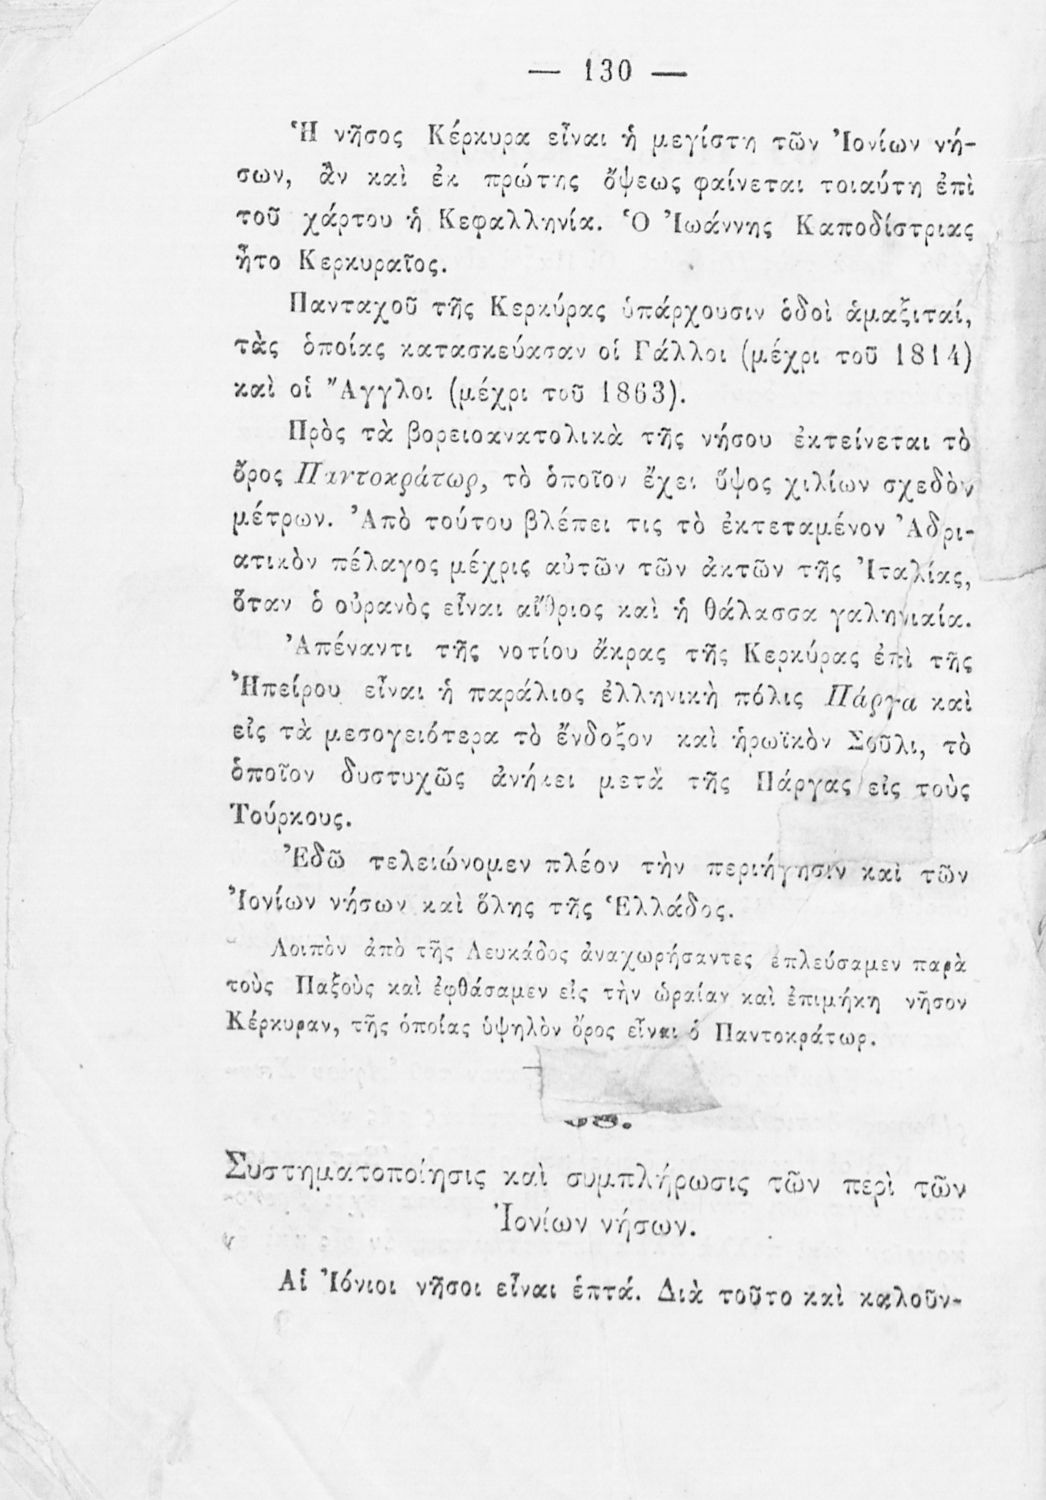 — 130 —
Ἡ νῆσος Κέρκυρα εἶναι ἡ μεγίστη τῶν Ἰονίων νή-
σων, ἂν καὶ ἐκ πρώτης ὄψεως φαίνεται τοιαύτη ἐπὶ
τοῦ χάρτου ἡ Κεφαλληνία. Ὁ Ἰωάννης Καποδίστριας
ἦτο Κερκυραῖος.
Πανταχοῦ τῆς Κερκύρας ὑπάρχουσιν ὁδοὶ ἁμαξιταί,
τὰς ὁποίας κατασκεύασαν οἱ Γάλλοι (μέχρι τοῦ 1814)
καὶ οἱ Ἄγγλοι (μέχρι τοῦ 1863).
Πρὸς τὰ βορειοανατολικὰ τῆς νήσου ἐκτείνεται τὸ
ὄρος Παντοκράτωρ, τὸ ὁποῖον ἔχει ὕψος χιλίων σχεδὸν
μέτρων. Ἀπὸ τούτου βλέπει τις τὸ ἐκτεταμένον Ἀδρι-
ατικὸν πέλαγος μέχρις αὐτῶν τῶν ἀκτῶν τῆς Ἰταλίας,
ὅταν ὁ οὐρανὸς εἶναι αἴθριος καὶ ἡ θάλασσα γαληνιαία.
Ἀπέναντι τῆς νοτίου ἄκρας τῆς Κερκύρας ἐπὶ τῆς
Ἠπείρου εἶναι ἡ παράλιος ἑλληνικὴ πόλις Πάργα καὶ
εἰς τὰ μεσογειότερα τὸ ἔνδοξον καὶ ἡρωϊκὸν Σοῦλι, τὸ
ὁποῖον δυστυχῶς ἀνήκει μετὰ τῆς Πάργας εἰς τοὺς
Τούρκους.
Ἐδῶ τελειώνομεν πλέον τὴν περιήγησιν καὶ τῶν
Ἰονίων νήσων καὶ ὅλης τῆς Ἑλλάδος.
Λοιπὸν ἀπὸ τῆς Λευκάδος ἀναχωρήσαντες ἐπλεύσαμεν παρὰ
τοὺς Παξοὺς καὶ ἐφθάσαμεν εἰς τὴν ὡραίαν καὶ ἐπιμήκη νῆσον
Κέρκυραν, τῆς ὁποίας ὑψηλὸν ὄρος εἶναι ὁ Παντοκράτωρ.
Συστηματοποίησις καὶ συμπλήρωσις τῶν περὶ τῶν
Ἰονίων νήσων.
Αἱ Ἰόνιοι νῆσοι εἶναι ἑπτά. Διὰ τοῦτο καὶ καλοῦν-